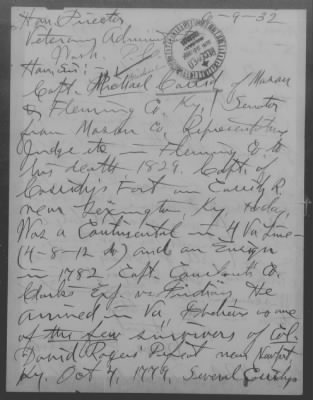 Hon. Director 6-9-32
Veterans Admins
Wash. D.C.
Hon. Sir:
Capt. Michael Cassidy of Mason
& Fleming Co. Ky, Senator
from Mason Co., Representative
Judge etc — Fleming Co. to
his death 1829. Capt. of
Cassidy's Fort on Cassidy R.
near Lexington, Ky today,
Was a Continental in 4 Va Line
(4-8-12 ) and an Ensign
in 1782 Capt.
Clarks Exp. vs Indians. He
arrived in Va, was one
of the few survivors of Col.
David Rogers Defeat near Newport
Ky. Oct 4, 1779. Several Cassidys